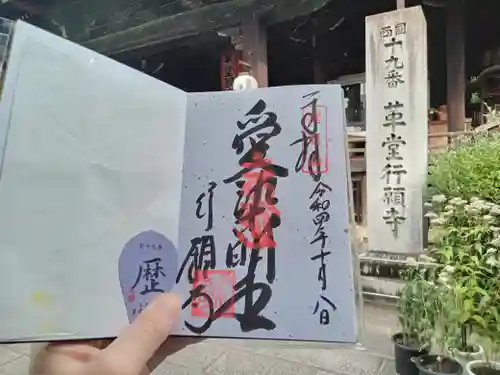 奉拝
令和四年十月八日
愛染明王
行願寺
歴
西国
十九番 革堂行願寺